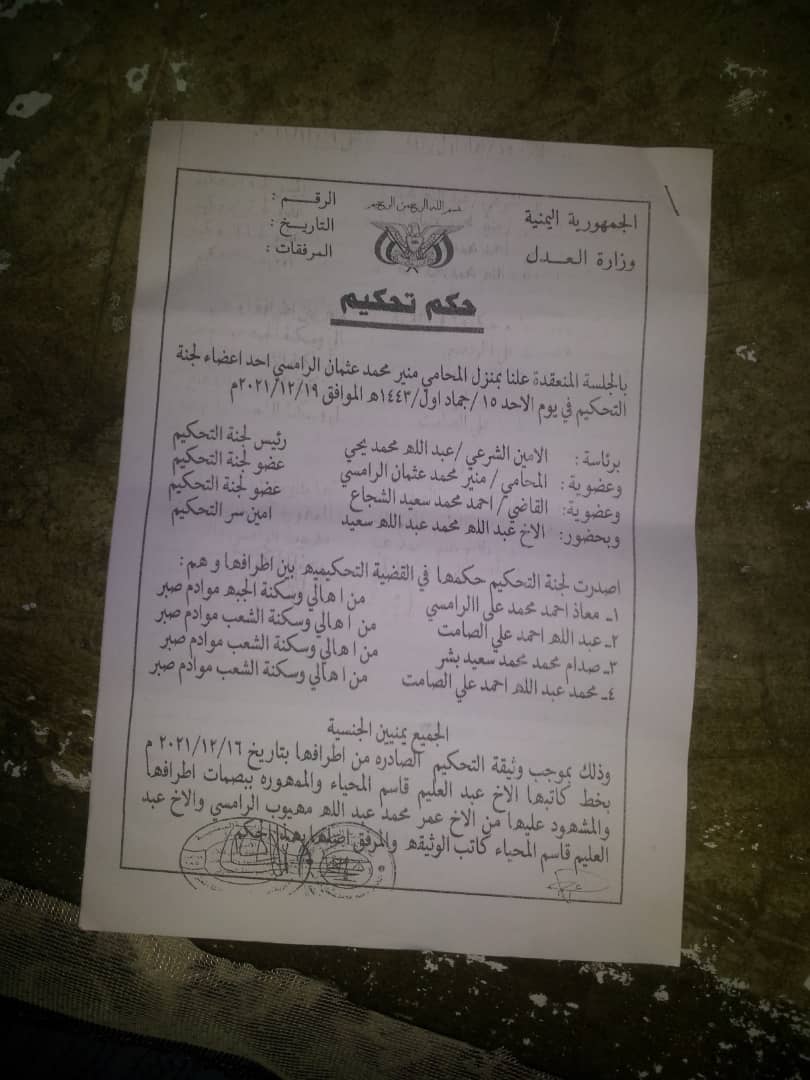 الجمهورية اليمنية
وزارة العــدل
بسم الله الرحمن الرحيم
الرقــم :
التاريــخ :
المرفقات :
حكم تحكيم
بالجلسة المنعقدة علنا بمنزل المحامي منير محمد عثمان الرامسي احد اعضاء لجنة
التحكيم في يوم الاحد ١٥ /جماد اول/١٤٤٣ه الموافق ٢٠٢١/١٢/١٩م
برئاسة : الامين الشرعي /عبد الله محمد يحي رئيس لجنة التحكيم
وعضوية : المحامي/ منير محمد عثمان الرامسي عضو لجنة التحكيم
وعضوية: القاضي/ احمد محمد سعيد الشجاع عضو لجنة التحكيم
وبحضور: الاخ عبد الله محمد عبد الله سعيد امين سر التحكيم
اصدرت لجنة التحكيم حكمها في القضية التحكيميه بين اطرافها و هم :
١ـ معاذ احمد محمد علي االرامسي من اهالي وسكنة الجبه موادم صبر
٢ـ عبد الله احمد علي الصامت من اهالي وسكنة الشعب موادم صبر
٣ـ صدام محمد محمد سعيد بشر من اهالي وسكنة الشعب موادم صبر
٤ـ محمد عبد الله احمد علي الصامت من اهالي وسكنة الشعب موادم صبر
الجميع يمنيين الجنسية
وذلك بموجب وثيقة التحكيم الصادره من اطرافها بتاريخ ٢٠٢١/١٢/١٦ م
بخط كاتبها الاخ عبد العليم قاسم المحياء والممهوره ببصمات اطرافها
والمشهود عليها من الاخ عمر محمد عبد الله مهيوب الرامسي والاخ عبد
العليم قاسم المحياء كاتب الوثيقه والمرفق اصلها بهذا الحكم